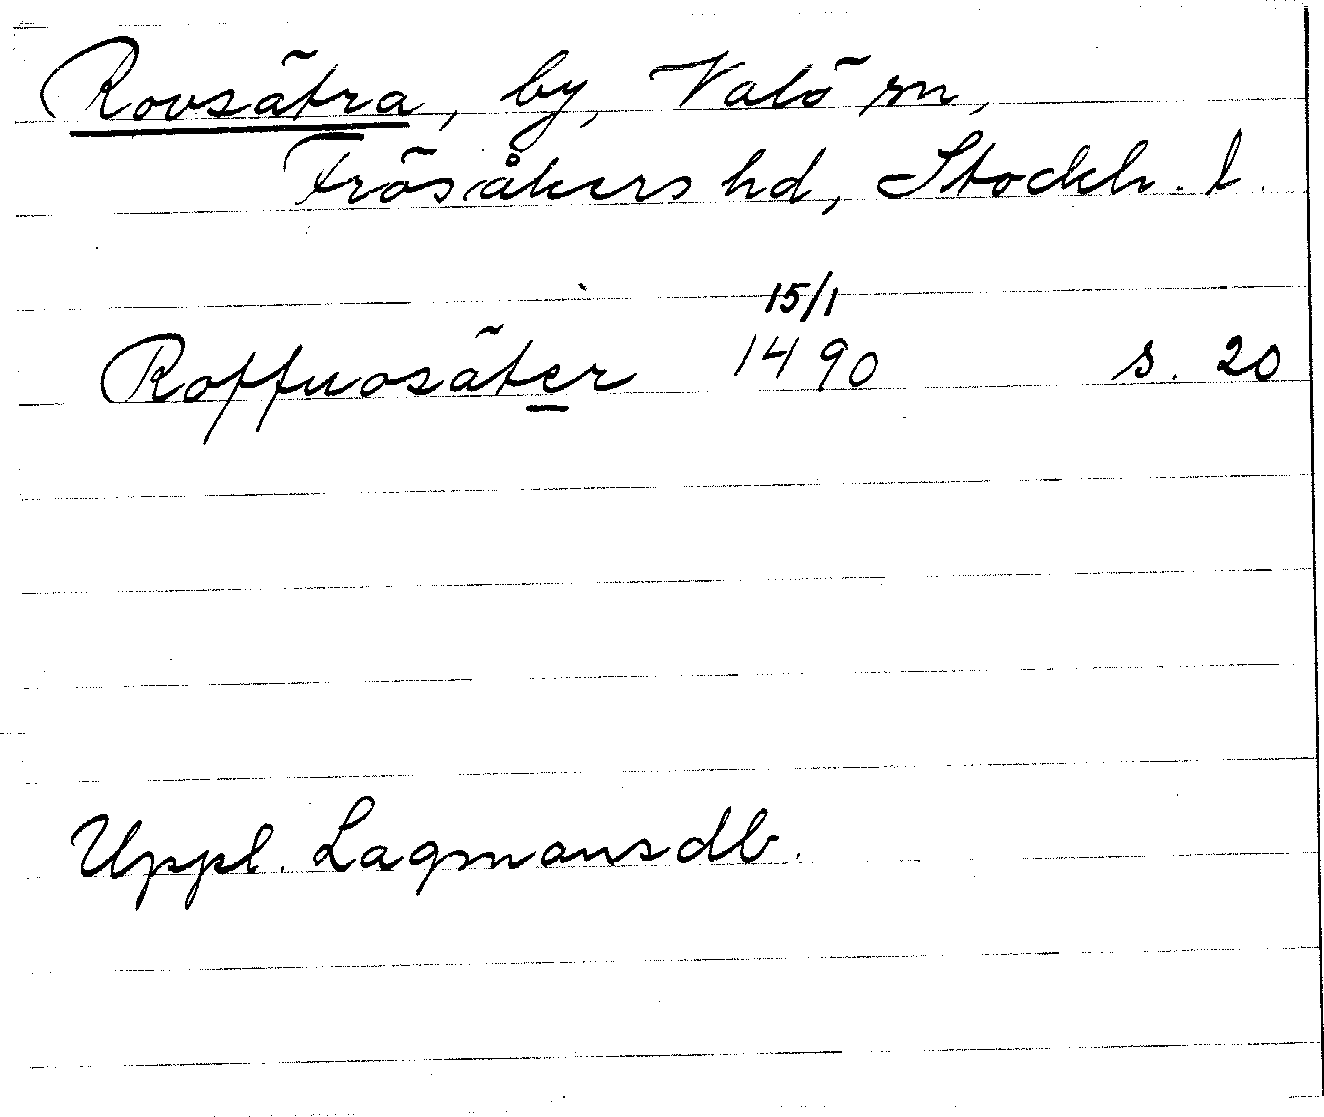 Rovsätra, by, Valö sn,
Frösåkers hd, Stockh. l.
15/1
Roffuosäter 1490 s. 20
Uppl. Lagmansdb.